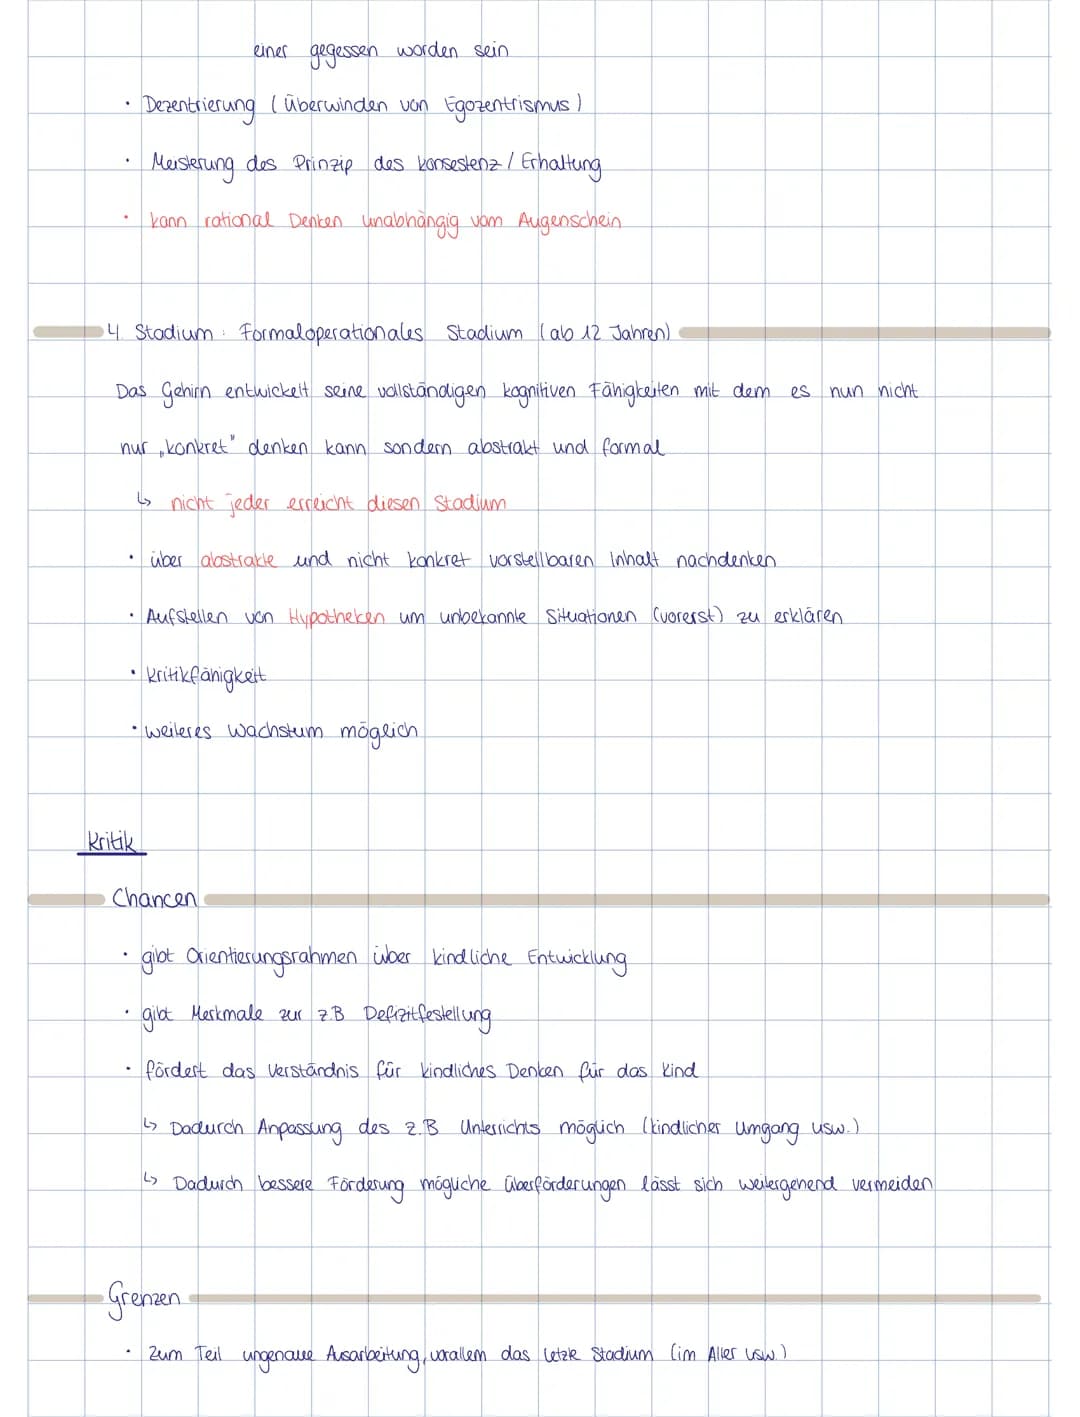 einer gegessen worden sein
• Dezentrierung (Überwinden von Egozentrismus)
• Meisterung des Prinzip des Konsestenz / Erhaltung
• kann rational Denken unabhängig vom Augenschein
4. Stadium: Formaloperationales Stadium (ab 12 Jahren)
Das Gehirn entwickelt seine vollständigen kognitiven Fähigkeiten mit dem es nun nicht
nur „konkret" denken kann sondern abstrakt und formal
↳ nicht jeder erreicht diesen Stadium
• über abstrakte und nicht konkret vorstellbaren Inhalt nachdenken
• Aufstellen von Hypotheken um unbekannte Situationen (vorerst) zu erklären
• Kritikfähigkeit
• weiteres Wachstum möglich
Kritik
Chancen
• gibt Orientierungsrahmen über kindliche Entwicklung
• gibt Merkmale zur z.B Defizitfestellung
• fördert das Verständnis für kindliches Denken für das Kind
↳ Dadurch Anpassung des z.B Unterrichts möglich (kindlicher Umgang usw.)
↳ Dadurch bessere Förderung mögliche überförderungen lässt sich weitergehend vermeiden
Grenzen
• Zum Teil ungenaue Ausarbeitung, vorallem das letzte Stadium (im Alter usw.)